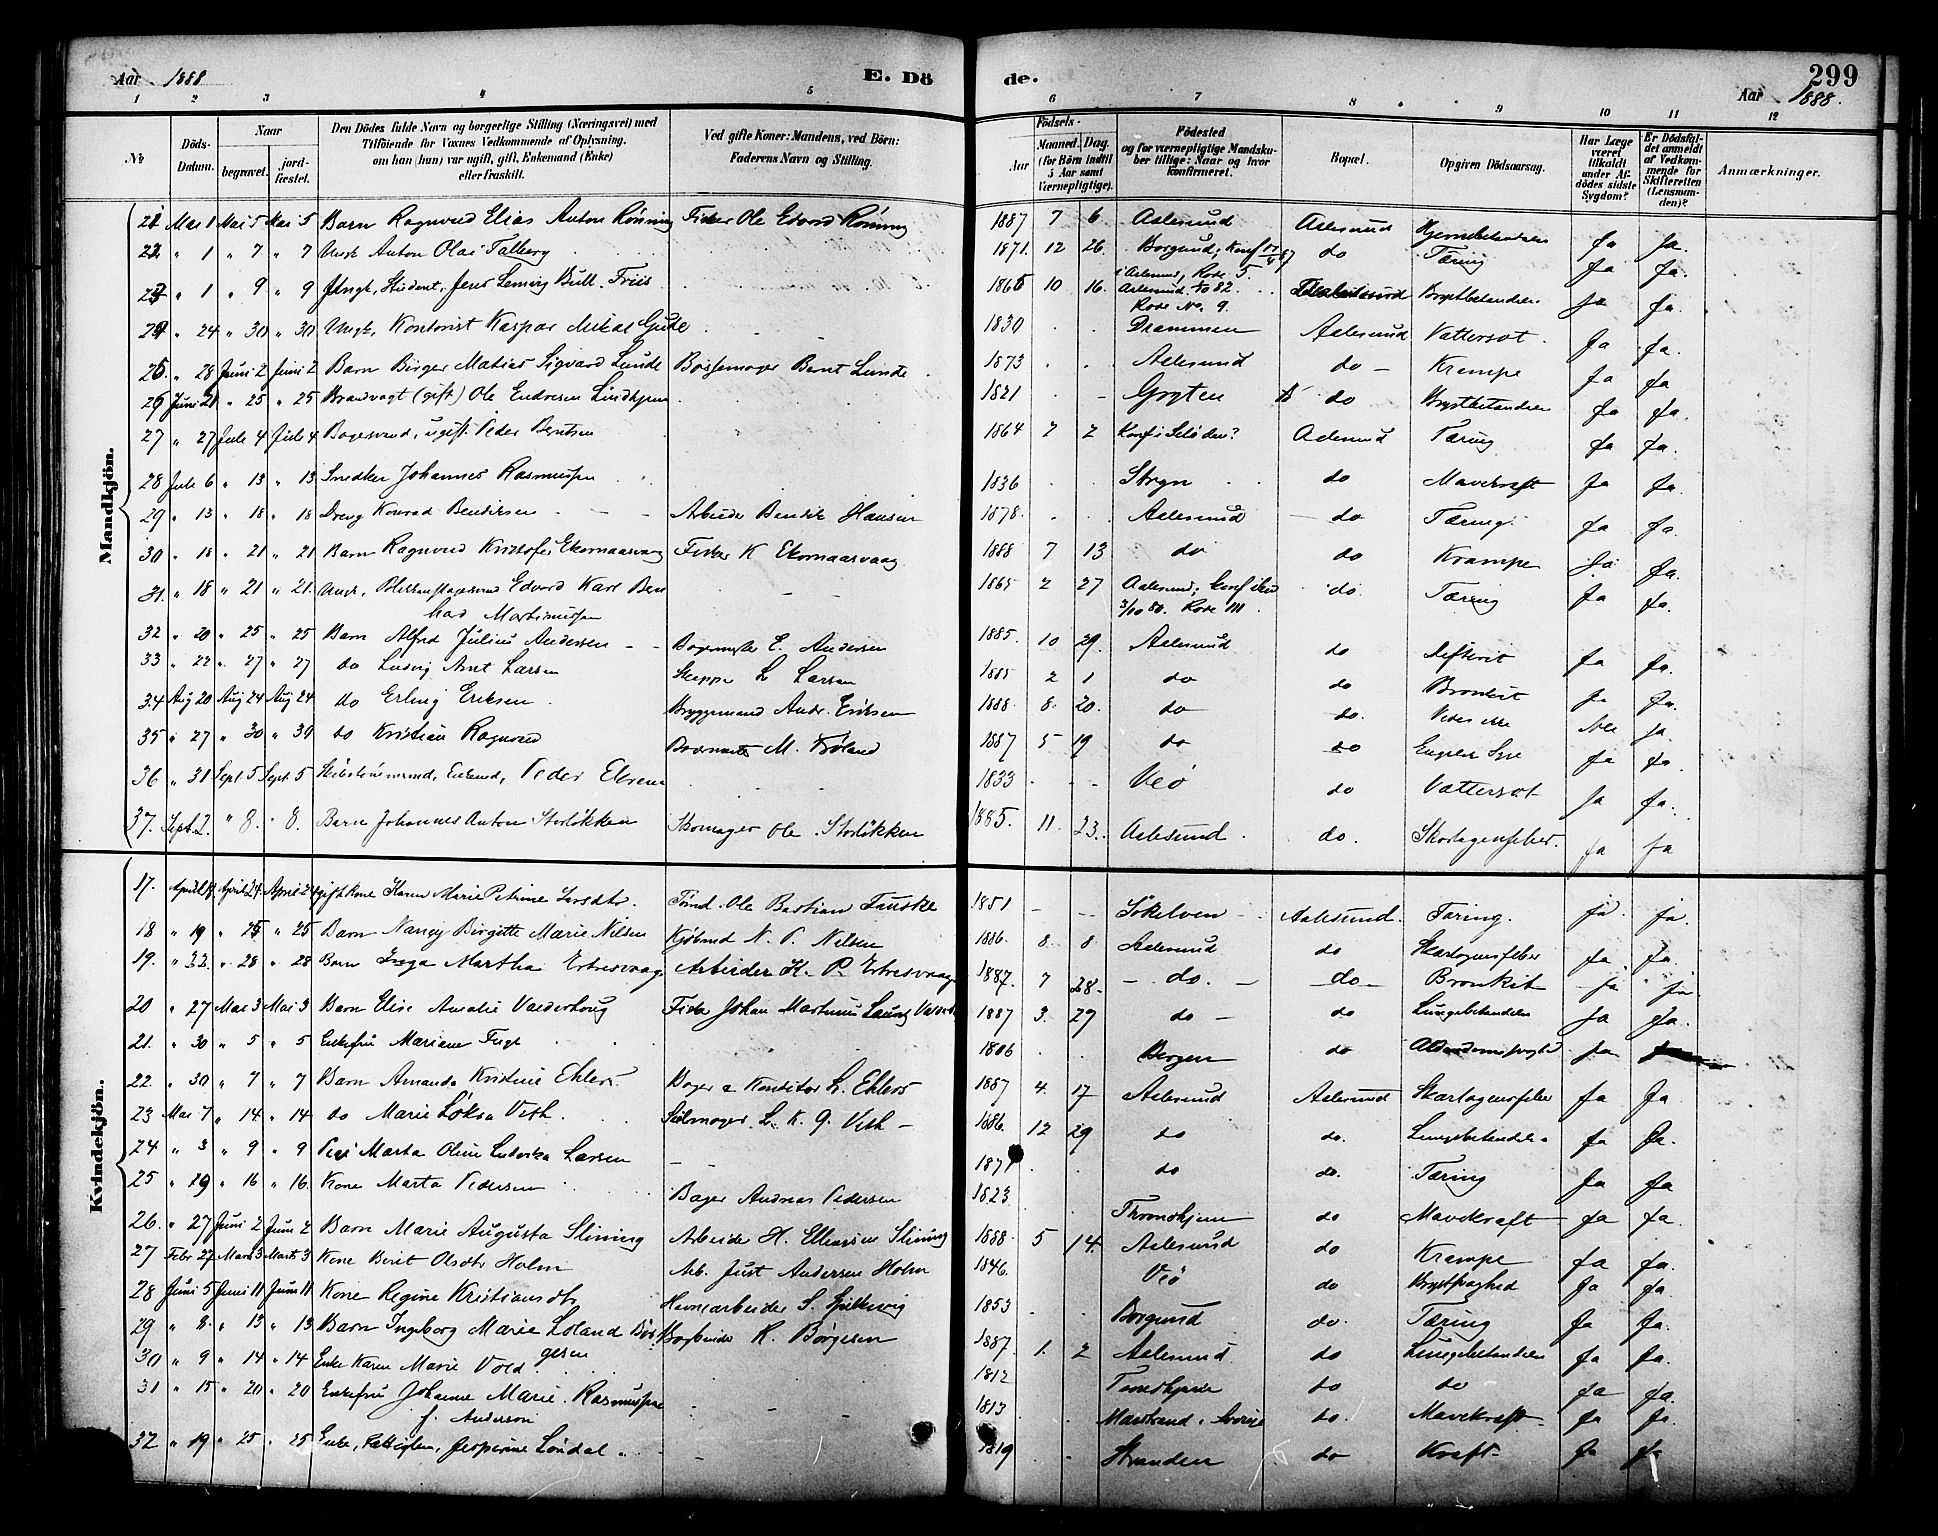 Aar 1888. E. Döde. Aar 1888. 299
1 2 3 4 5 6 7 8 9 10 11 12
No
Döds-Datum.
Naar begravet. jordfæstet.
Den Dödes fulde Navn og borgerlige Stilling (Næringsvei) med Tilföiende for Voxnes Vedkommende af Oplysning, om han (hun) var ugift, gift, Enkemand (Enke) eller fraskilt.
Ved gifte Koner: Mandens, ved Börn: Faderens Navn og Stilling.
Födsels- Aar Maaned. Dag. (for Börn indtil 5 Aar samt Værnepligtige).
Födested og for værnepligtige Mandskuber tillige: Naar og hvor konfirmeret.
Bopæl.
Opgiven Dödsaarsag.
Har Læge været tilkaldt under Afdödes sidste Sygdom?
Er Dödsfaldet anmeldt af Vedkommende for Skifteretten (Lensmanden)?
Anmærkninger.
Mandkjön.
21 Mai 1 Mai 5 Mai 5 Barn Ragnvald Elias Anton Rönning Fisker Ole Edvard Rönning 1887 7 6 Aalesund Aalesund Ja Ja.
22 " 1 " 7 " 7 Ungk. Anton Olai Talberg 1871 12 26 Borgund, Konf do Tæring Ja Ja.
23 " 1 " 9 " 9 Ungk., Student, Jens Lemvig Bull Friis 10 16 Aalesund Brystbetændelse Ja Ja.
24 " 24 " 30 " 30 Ungk. Kontorist Kaspar Mikal Gude 1830 Drammen Aalesund Vattersot. Ja Ja.
25. " 28 Juni 2 Juni 2 Barn Birger Matias Sigvard Lunde Bössemager Bernt Lunde 1873 Aalesund do Krampe Ja Ja
26 Juni 21 " 25 " 25 Brandvagt (gift) Ole Endresen Lindhjem 1821 Gryten do Brystbetændelse Ja Ja.
27 " 27 Juli 4 Juli 4 Bagersvend, ugift. Peder Berntsen 1864 2 2 Aalesund Tæring Ja Ja.
28 Juli 6 " 13 " 13 Snedker Johannes Rasmussen 1836 Stryn do Mavekræft Ja Ja.
29 " 13 " 18 " 18 Dreng Konrad Bendiksen Arbeider Bendik Hansen 1878. Aalesund do Tæring. Ja Ja.
30 " 18 " 21 " 21 Barn Ragnvald Kristofer Ekornaasvaag Fisker K Ekornaasvaag 1888 7 13 do do Krampe Ja Ja.
31. " 18 " 21 " 21. Ungk, Edvard Karl Bern
hard Martinussen 1865 2 27 Aalesund; 3/10 80. Rode III do Tæring Ja Ja.
32 " 20 " 25 " 25 Barn Alfred Julius Andersen Bagermester E. Andersen 1885. 10 29. Aalesund do Ja Ja.
33 " 22 " 27 " 27 do Ludvig Arnt Larsen Skipper L Larsen 1885 2 1 do do Bronkit Ja Ja.
34 Aug 20 Aug 24 Aug 24 do Erling Eriksen Bryggemand Andr. Eriksen 1888. 8. 20. do do. Vides ikke Nei Ja.
35 " 27 " 30 " 30 do Kristian Ragnvald M. Fröland 1887 5 19 do do Engelsk Syge Ja Ja.
36 " 31 Sept. 5 Sept. 5 Enkemd, Peder Elsen 1833 Veö do Vattersot Ja Ja.
37. Sept. 2. " 8. " 8. Barn Johannes Anton Storlökken Skomager Ole Storlökken 1885. 11. 23. Aalesund. do. Skarlagensfeber. Ja Ja
Kvindekjön.
17. April 24 April 24 gift Kone Karen Marie Petrine Larsdtr. Ole Bastian Fauske 1851 Sökelven Aalesund. Tæring. ja. ja.
18 " 19 " 25 " 25 Barn Nancy Birgitte Marie Nilsen Kjöbmd N. P. Nilsen 1886. 8. 8 Aalesund do Skarlagensfeber Ja. Ja.
19. " 22. " 28 " 28 Barn Inga Martha Ertresvaag. Arbeider K. P. Ertresvaag 1887. 7 28. do. do Bronkit Ja Ja.
20 " 27 Mai 3 Mai 3 Barn Elise Amalie Valderhoug Fisker Johan Martinus 1887 3. 29 do do Lungebetændelse Ja Ja.
21. " 30 " 5 " 5 Enkefru Mariane 1806 Bergen do Alderdomssvaghed Ja
22 " 30 " 7 " 7 Barn Amanda Kristine Ehlers Bager & Konditor L. Ehlers 1887 4. 17 Aalesund Aalesund Skarlagensfeber Ja Ja.
23 Mai 7 " 14 " 14 do Marie Veth. L. K. G. Veth 1886. 12 29 do do. Lungebetændelse Ja Ja.
24 " 3 " 9 " 9 Pige Marta Oline Ludovika Larsen 1871 do do. Tæring Ja Ja
25 " 16 " 16. Kone Marta Pedersen Bager Andreas Pedersen 1823 Throndhjem do Mavekræft Ja Ja.
26. " 27 Juni 2 Juni 2 Barn Marie Augusta Slining Arbeider H. Slining 1888. 5 14. Aalesund do Krampe Ja Ja.
27 Febr 27 Marts 3 Marts 3 Kone Berit Olsdtr Holm Arb. Just Andersen Holm 1846. Veö do Brystsvaghed Ja Ja.
28 Juni 5 Juni 11 Juni 11 Kone Regine Kristiansdtr Havnearbeider S. Spilkevig 1853 Borgund do. Tæring Ja Ja.
29 " 8. " 13 " 13 Barn Ingeborg Marie Loland Bör
gesen Bogbinder R. Börgesen 1887. 1. 2 Aalesund do Lungebetændelse Ja Ja.
30 " 9 " 14 " 14 Enke Karen Marie Vold 1812 Trondhjem do do Ja Ja.
31 " 15 " 20 " 20 Enkefru Johanne Marie Rasmussen
f. Anderson 1813 Marstrand, Sverige do. Mavekræft Ja Ja.
32 " 19 " 25 " 25 Enke, Jesperine Löndal 1819 Stranden do Kræft Ja Ja